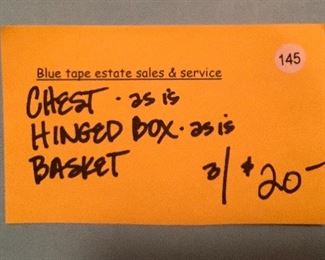 145
Blue tape estate sales & service
CHEST - as is
HINGED BOX - as is
BASKET
3/ $20-